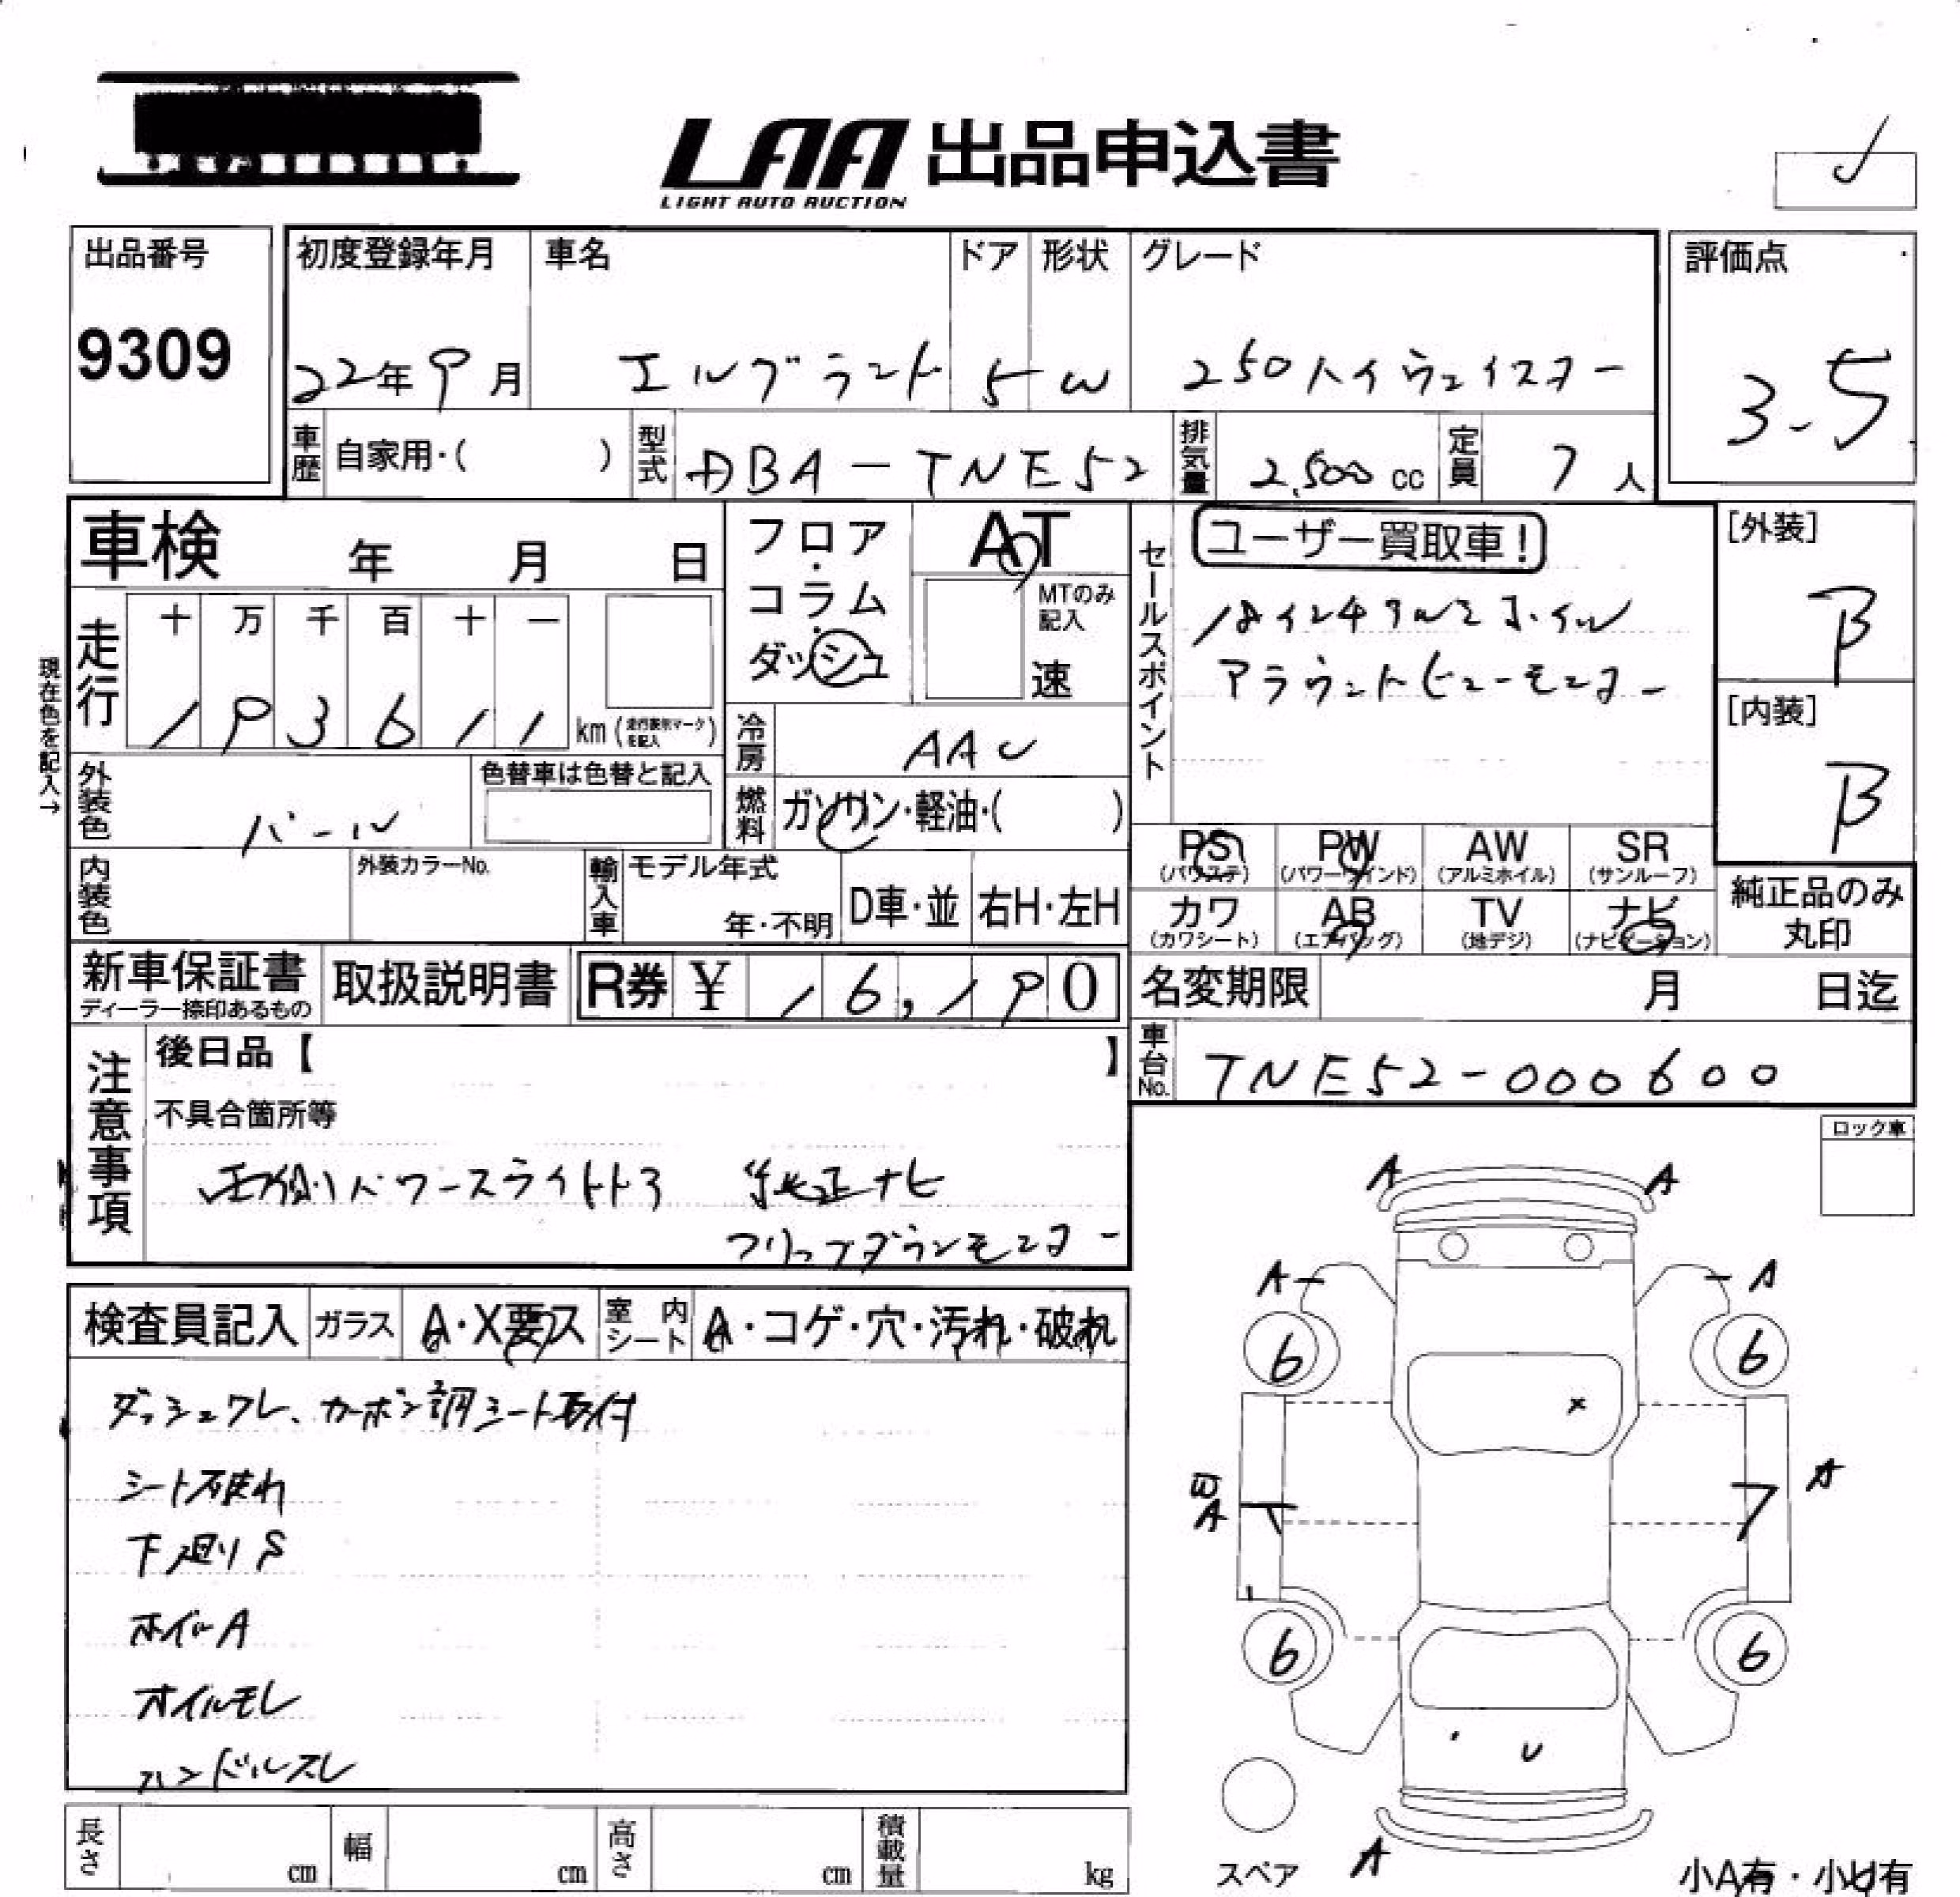 LAA 出品申込書
LIGHT AUTO AUCTION
出品番号
9309
初度登録年月
22年9月
車名
エルグランド
ドア
5
形状
W
グレード
250ハイウェイスター
評価点
3.5
車歴
自家用・( )
型式
DBA-TNE52
排気量
2,500 cc
定員
7 人
車検 年 月 日
フロア・コラム・ダッシュ
AT
MTのみ記入
速
セールスポイント
ユーザー買取車!
18インチアルミホイル
アラウンドビューモニター
[外装]
B
[内装]
B
現在色を記入→
走行
十 万 千 百 十 一
1 9 3 6 1 1
km (走行表示マークを記入)
冷房
AAC
外装色
パール
色替車は色替と記入
燃料
ガソリン・軽油・( )
内装色
外装カラーNo.
輸入車
モデル年式
年・不明
D車・並
右H・左H
PS
(パワステ)
PW
(パワーウインド)
AW
(アルミホイル)
SR
(サンルーフ)
カワ
(カワシート)
AB
(エアバッグ)
TV
(地デジ)
ナビ
(ナビゲーション)
純正品のみ
丸印
新車保証書
ディーラー捺印あるもの
取扱説明書
R券 ¥ 16,190
名変期限 月 日迄
車台No.
TNE52-000600
注意事項
後日品【 】
不具合箇所等
両側パワースライドドア 純正ナビ
フリップダウンモニター
ロック車
検査員記入
ガラス
A・X要ス
室内シート
A・コゲ・穴・汚れ・破れ
ダッシュワレ、カーボン調シート取付
シート破れ
下廻りS
ホイルA
オイルモレ
ハンドルスレ
A A
A A
6 6
X
A
A
6 6
U
スペア
A
小A有・小U有
長さ cm
幅 cm
高さ cm
積載量 kg